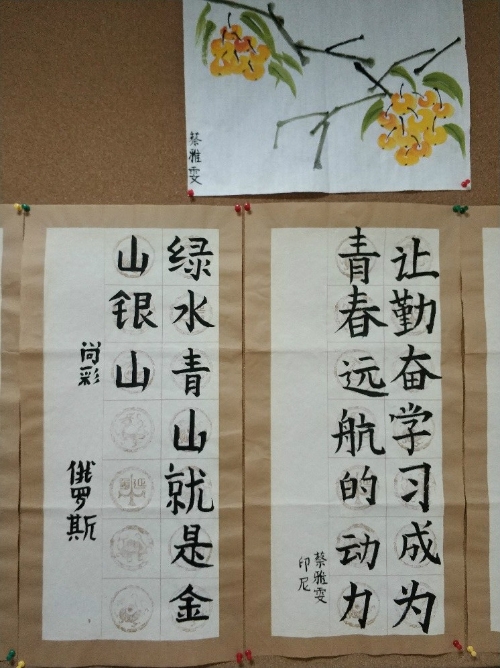 蔡雅雯
让勤奋学习成为
青春远航的动力
蔡雅雯
印尼
绿水青山就是金
山银山
尚彩
俄罗斯